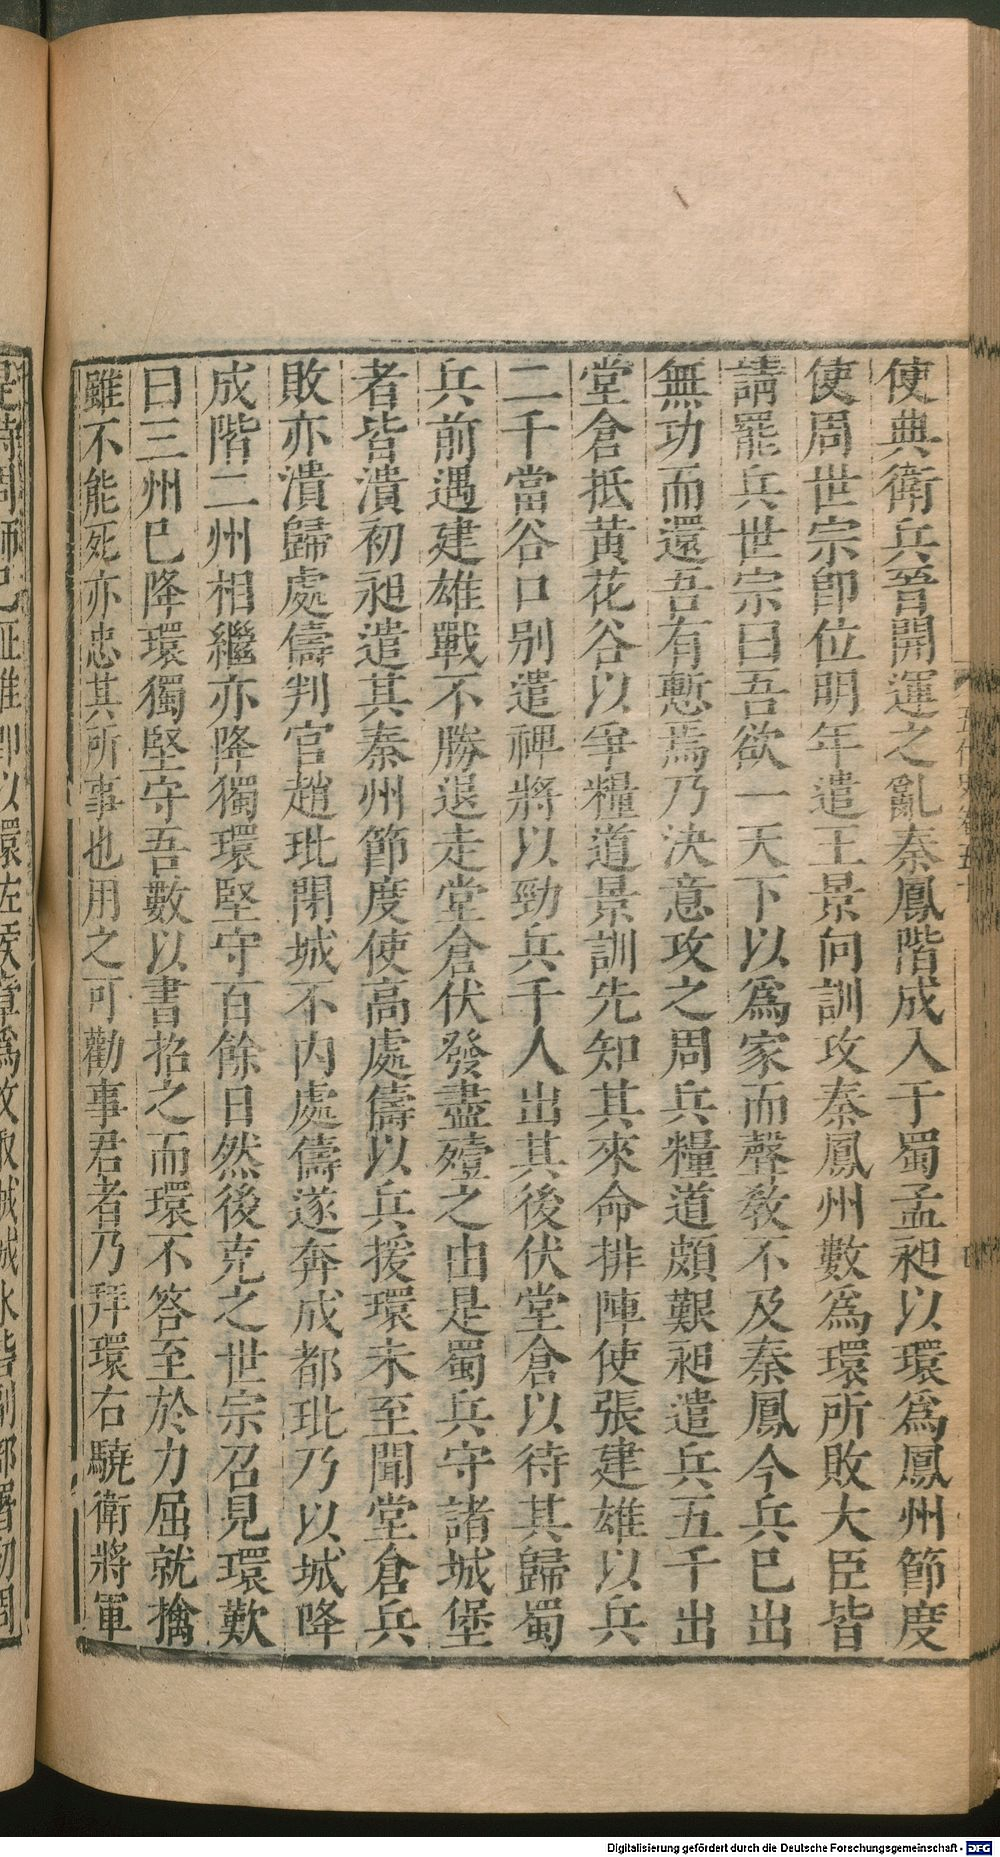 使典衛兵晉開運之亂秦鳳階成入于蜀孟昶以環爲鳳州節度
使周世宗卽位明年遣王景向訓攻秦鳳州數爲環所敗大臣皆
請罷兵世宗曰吾欲一天下以爲家而聲敎不及秦鳳今兵已出
無功而還吾有慙焉乃決意攻之周兵糧道頗艱昶遣兵五千出
堂倉抵黃花谷以爭糧道景訓先知其來命排陣使張建雄以兵
二千當谷口别遣裨將以勁兵千人出其後伏堂倉以待其歸蜀
兵前遇建雄戰不勝退走堂倉伏發盡殪之由是蜀兵守諸城堡
者皆潰初昶遣其秦州節度使高處儔以兵援環未至聞堂倉兵
敗亦潰歸處儔判官趙玭閉城不内處儔遂奔成都玭乃以城降
成階二州相繼亦降獨環堅守百餘日然後克之世宗召見環歎
曰三州已降環獨堅守吾數以書招之而環不答至於力屈就擒
雖不能死亦忠其所事也用之可勸事君者乃拜環右驍衛將軍
Digitalisierung gefördert durch die Deutsche Forschungsgemeinschaft - DFG